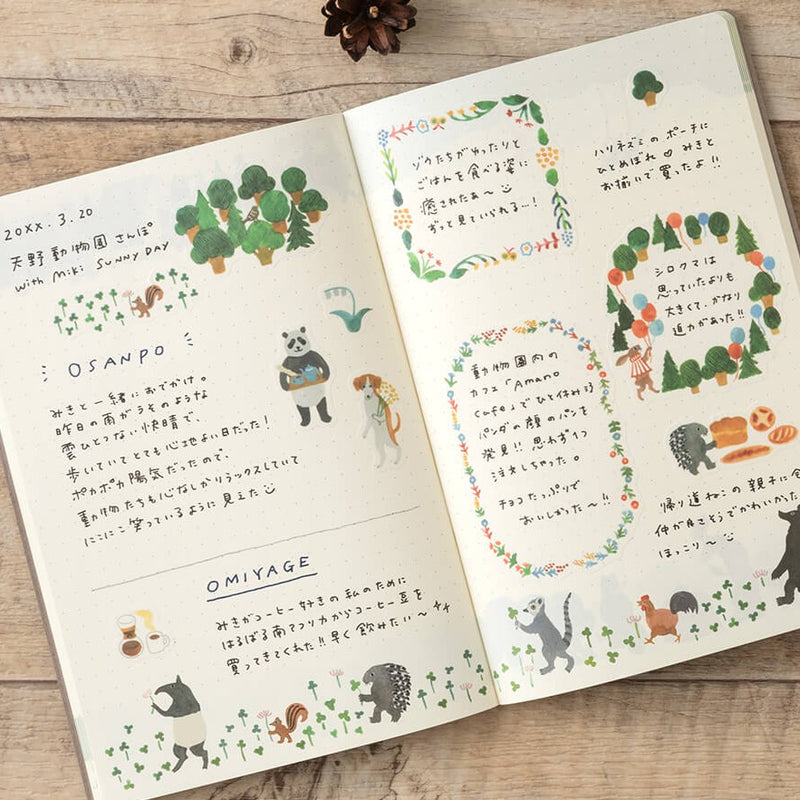 20XX. 3. 20
天野動物園 さんぽ
with Miki SUNNY DAY
OSANPO
みきと一緒におでかけ。
昨日の雨がうそのような
雲ひとつない快晴で、
歩いていてとても心地よい日だった!
ポカポカ陽気だったので、
動物たちも心なしかリラックスしていて
にこにこ笑っているように見えた
OMIYAGE
みきがコーヒー好きの私のために
はるばる南アフリカからコーヒー豆を
買ってきてくれた!!早く飲みたい〜
ゾウたちがゆったりと
ごはんを食べる姿に
癒されたぁ〜
ずっと見ていられる…!
ハリネズミのポーチに
ひとめぼれ♡みきと
お揃いで買ったよ!!
シロクマは
思っていたよりも
大きくて、かなり
迫力があった!!
動物園内の
カフェ「Amano
cafe」でひと休み
パンダの顔のパンを
発見!! 思わず1つ
注文しちゃった。
チョコたっぷりで
おいしかった〜!!
帰り道ねこの親子に
仲が良さそうでかわいかった
ほっこり〜